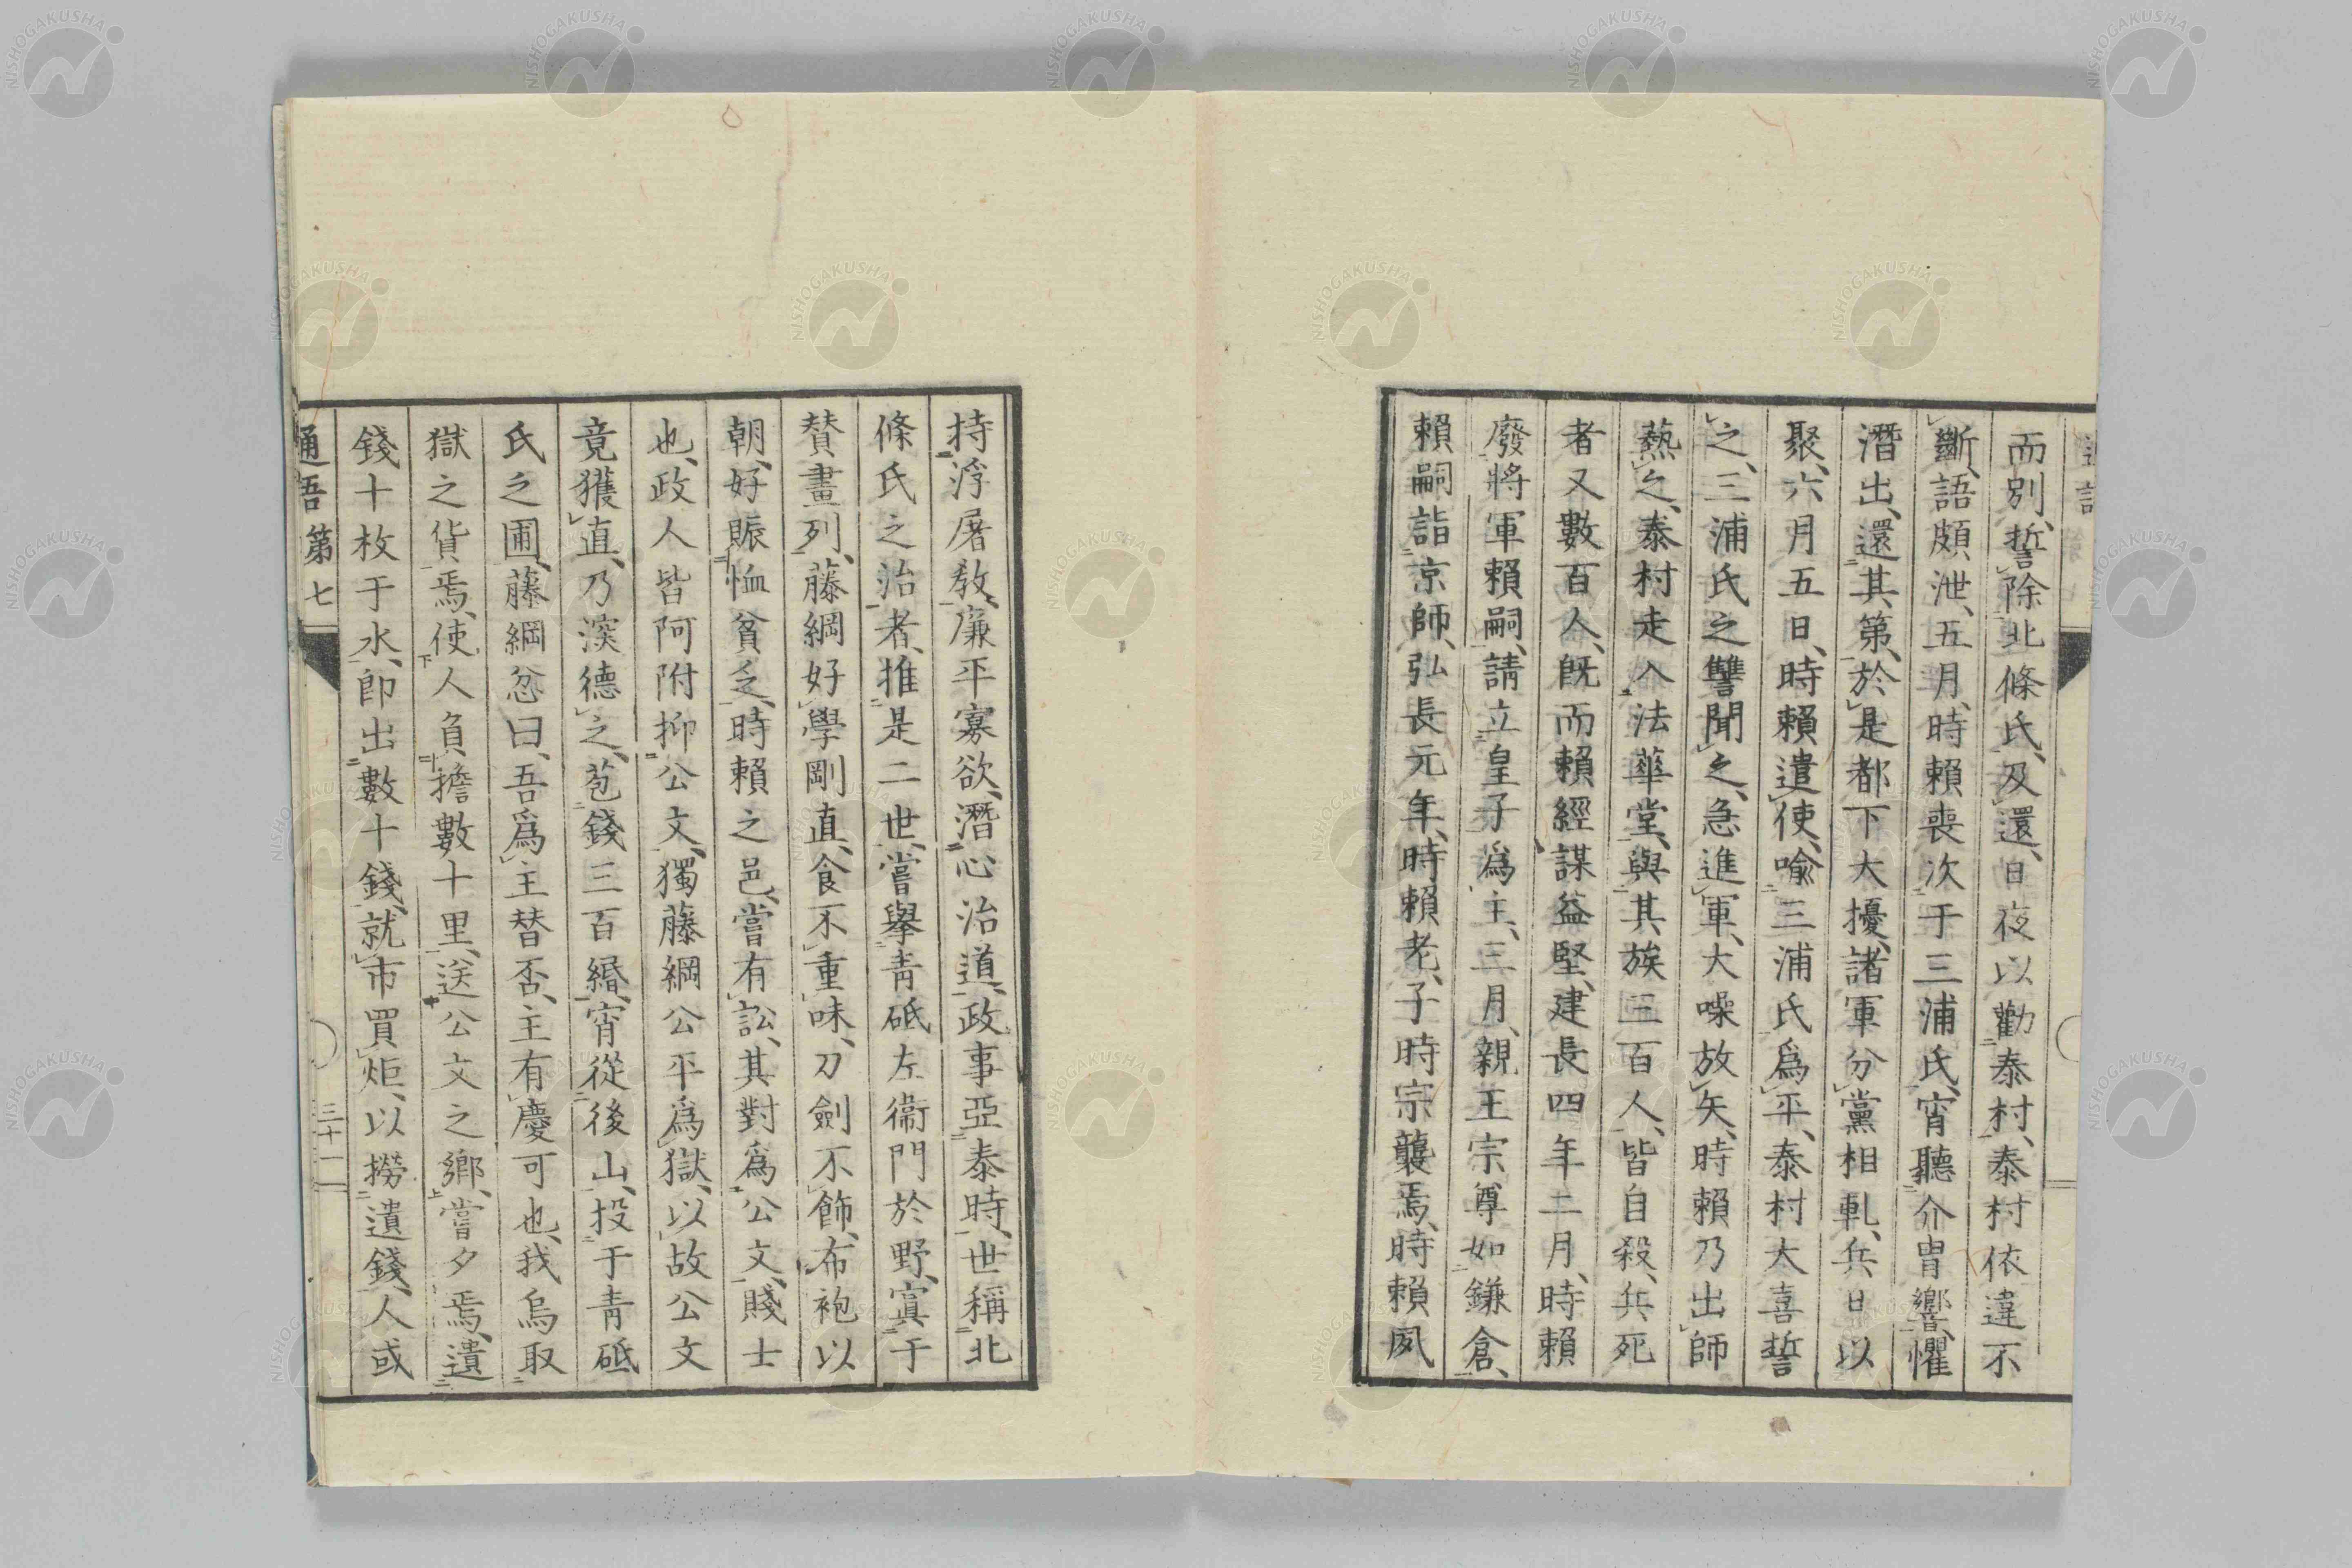 而別、誓除北條氏、及還、日夜以勸泰村、泰村依違不
斷、語頗泄、五月、時賴喪次于三浦氏、宵聽介冑響懼
潛出、還其第、於是都下大擾、諸軍分黨相軋、兵日以
聚、六月五日、時賴遣使、喩三浦氏爲平、泰村大喜誓
之、三浦氏之讐聞之、急進軍、大噪放矢、時賴乃出師
熱之、泰村走入法華堂、與其族三百人、皆自殺、兵死
者又數百人、既而賴經謀益堅、建長四年二月、時賴
廢將軍賴嗣、請立皇子爲主、三月、親王宗尊如鎌倉、
賴嗣詣京師、弘長元年、時賴老、子時宗襲焉、時賴夙
持浮屠教、廉平寡欲、潛心治道、政事亞泰時、世稱北
條氏之治者、推是二世、嘗擧青砥左衞門於野、寘于
賛畫列、藤綱好學剛直、食不重味、刀劍不飾、布袍以
朝、好賑恤貧乏、時賴之邑、嘗有訟、其對爲公文、賤士
也、政人皆阿附抑公文、獨藤綱公平爲獄、以故公文
竟獲直、乃深德之、苞錢三百緡、宵從後山、投于青砥
氏之圃、藤綱忿曰、吾爲主替否、主有慶可也、我烏取
獄之貨焉、使人負擔數十里、送公文之鄉、嘗夕焉、遺
錢十枚于水、卽出數十錢、就市買炬、以撈遺錢、人或
通語第七 三十一
NISHOGAKUSHA